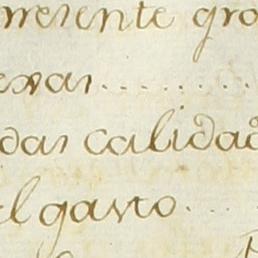 presente gra
exas........
das calidad
el gasto....